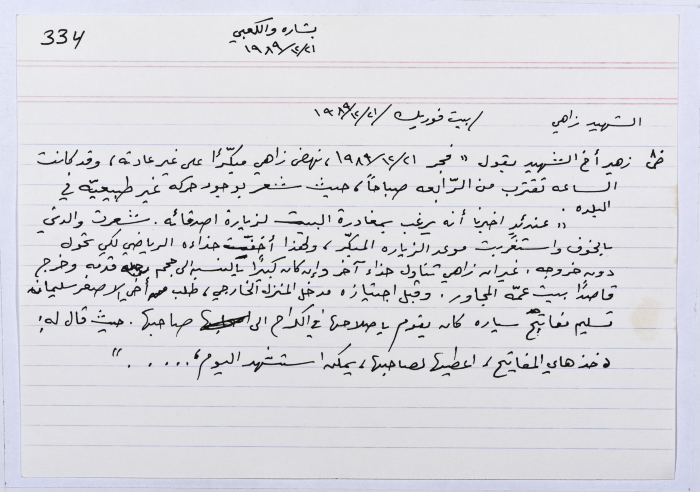 334
بشاره والكعبي
١٩٨٩/١٢/٢١
الشهيد زاهي / بيت فوريك / ١٩٨٩/١٢/٢١
زهير أخ الشهيد يقول " فجر ١٩٨٩/١٢/٢١، نهض زاهي مبكّرًا على غير عادته، وقد كانت
الساعه تقترب من الرّابعه صباحاً، حيث شعر بوجود حركه غير طبيعيّه في
البلده.
" عندئذٍ اخبرنا أنه يرغب بمغادرة البيت لزيارة اصدقائه. شعرت والدتي
بالخوف واستغربت موعد الزياره المبكّر، ولهذا أخفت حذاءه الرياضي لكي تحول
دون خروجه. غير ان زاهي تناول حذاء آخر وإن كان كبيرًا بالنسبه الى حجم قدمه وخرج
قاصدًا بيت عمّه المجاور. وقبل اجتيازه مدخل المنزل الخارجي، طلب من أخي الاصغر سليمان
تسليم مفاتيح سياره كان يقوم بإصلاحها في الكراج الى صاحبها. حيث قال له:
" خذ هاي المفاتيح، اعطيها لصاحبها، يمكن استشهد اليوم"....."